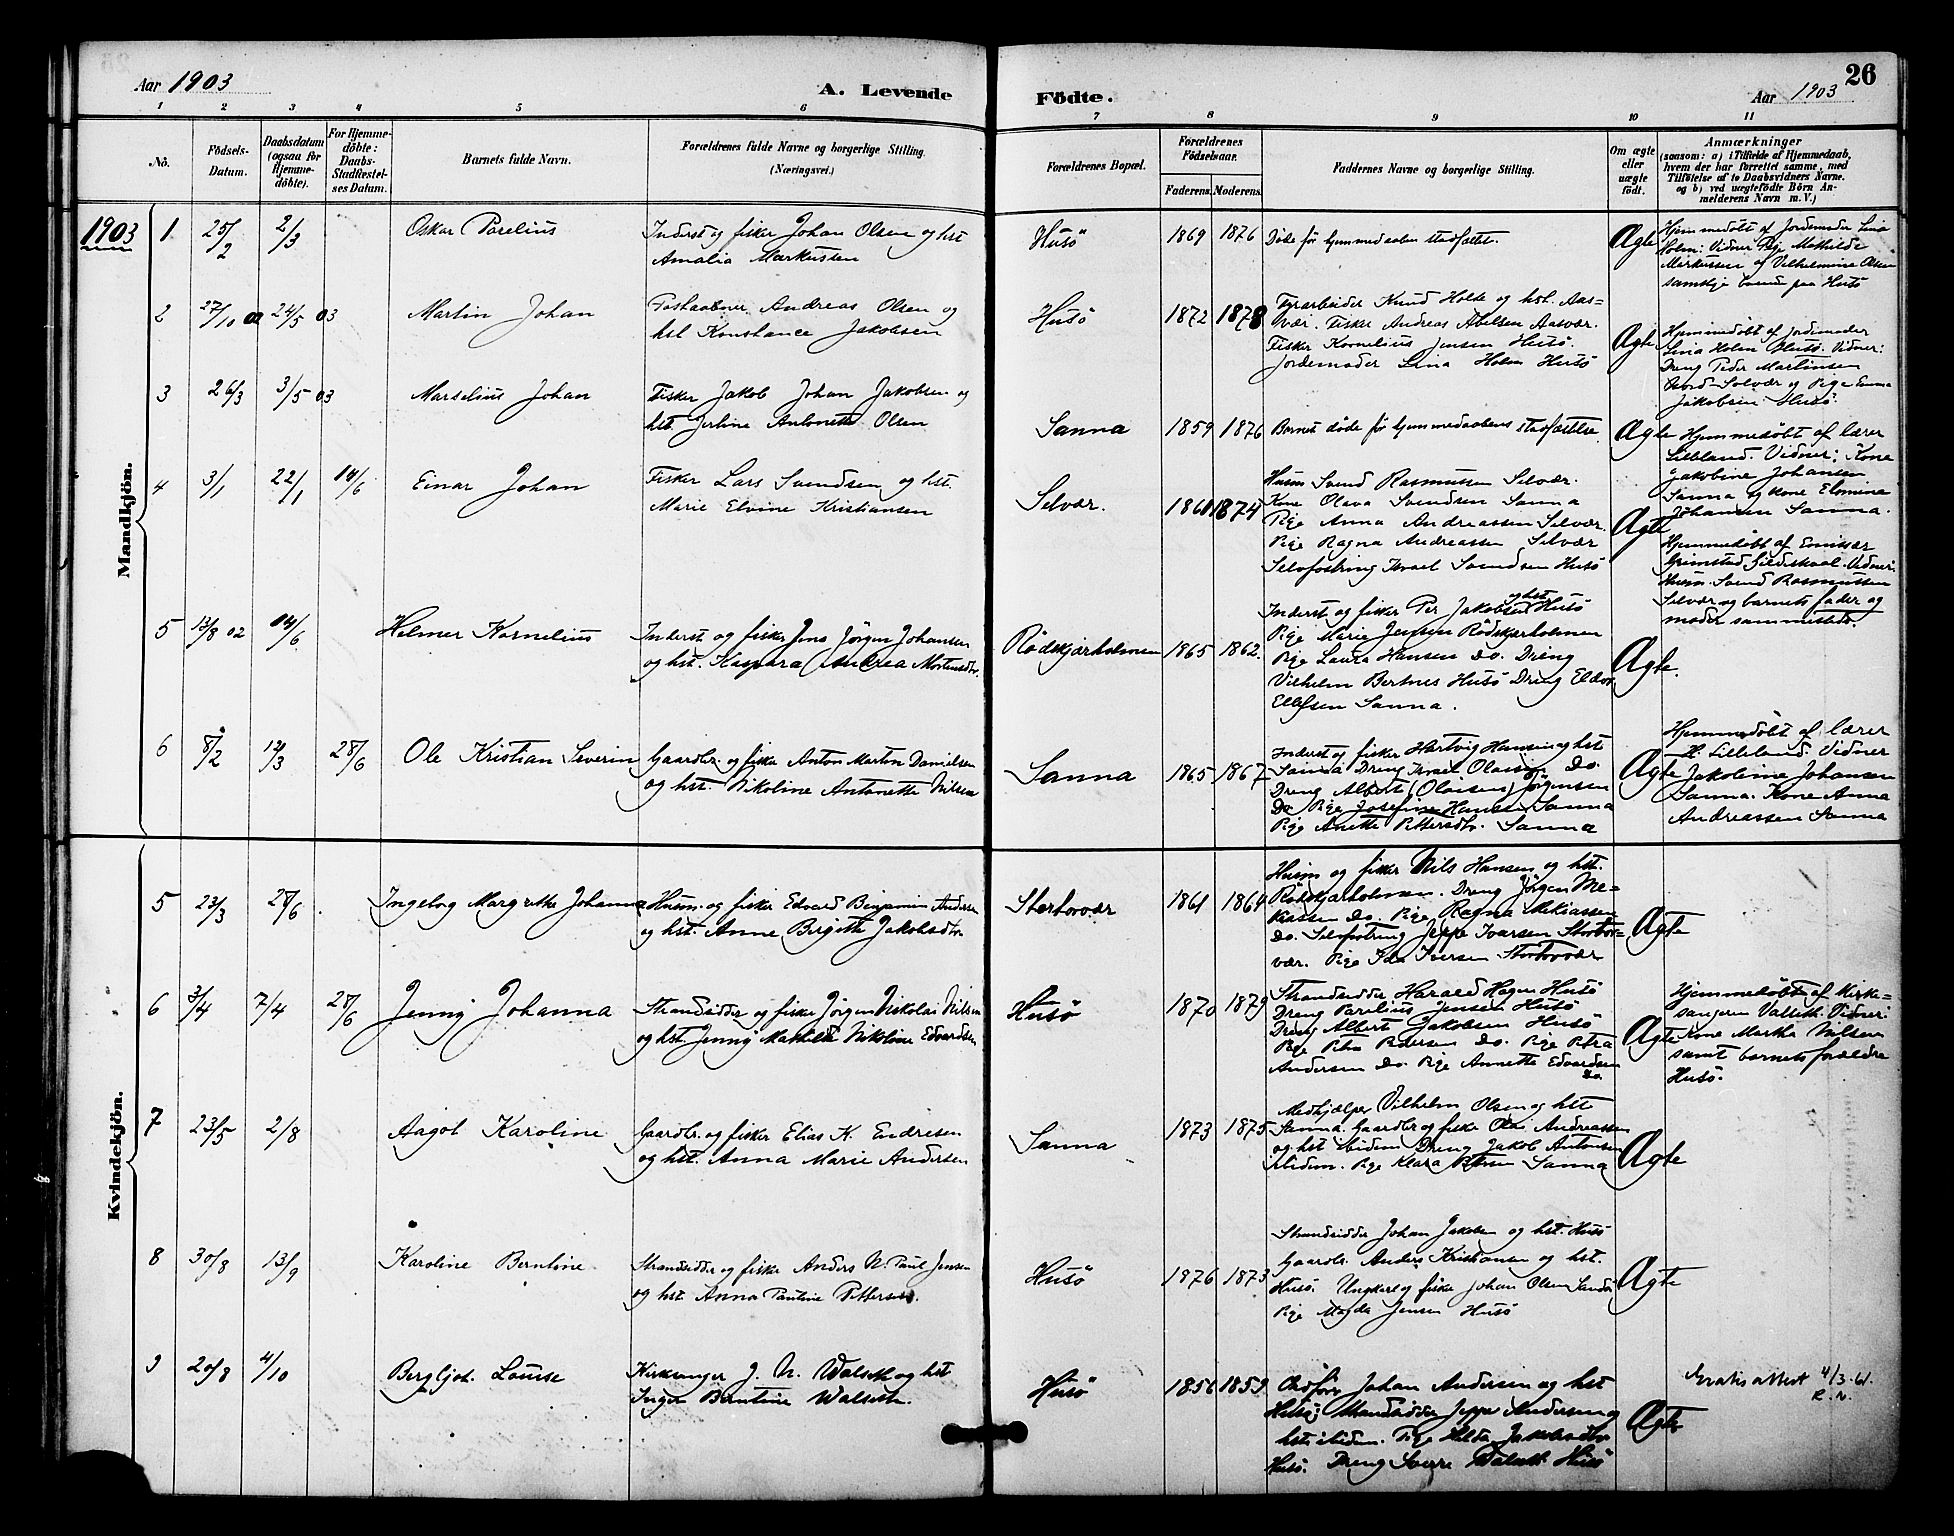 Aar 1903
A. Levende
Födte.
Aar 1903
26
1 2 3 4 5 6 7 8 9 10 11
No.
Födsels-
Datum.
Daabsdatum
(ogsaa for
Hjemme-
döbte).
For Hjemme-
döbte:
Daabs-
Stadfæstel-
ses Datum.
Barnets fulde Navn.
Forældrenes fulde Navne og borgerlige Stilling.
(Næringsvei.)
Forældrenes Bopæl.
Forældrenes
Födselsaar.
Faderens. Moderens.
Faddernes Navne og borgerlige Stilling.
Om ægte
eller
uægte
født.
Anmærkninger
(saasom: a) i Tilfælde af Hjemmedaab,
hvem der har forrettet samme, med
Tilföielse af to Daabsvidners Navne,
og b) ved uægtefödte Börn An-
melderens Navn m. V.)
Mandkjön.
1903 1 25/2 2/3 Oskar Parelius
Inderst og fisker Johan Olsen og hst
Amalia Markussen
Husö 1869 1876
Döde för hjemmedaaben stadfæstet.
Ægte
Hjemmedöbt af Jordemoder Lina
Holm: Vidner Pige Mathilde
Markussen og Vilhelmine Olsen
samtlige boende paa Husö
2 27/10 02 24/5 03 Martin Johan
Postaabner Andreas Olsen og
hst Konstance Jakobsen
Husö 1872 1878
Fyrarbeider Knud Holte og hst. Aas=
vær. Fisker Andreas Abelsen Aasvær.
Fisker Kornelius Jensen Husö.
Jordemoder Lina Holm Husö
Ægte
Hjemmedöbt af Jordemoder
Lina Holm Husö. Vidner:
Dreng Peder Martinsen
Selvær og Pige Emma
Jakobsen Husö.
3 26/3 3/5 03 Marselius Johan
Fisker Jakob Johan Jakobsen og
hst. Antonette Olsen
Sanna 1859 1876
Barnet döde för hjemmedaabens stadfæstelse
Ægte
Hjemmedöbt af lærer
Lilleland. Vidner: Kone
Jakobine Johansen
Sanna og kone
Johansen Sanna.
4 3/1 22/1 14/6 Einar Johan
Fisker Lars Svendsen og hst.
Marie Elvine Kristiansen
Selvær. 1874
Husm Svend Rasmussen Selvær.
Kone Olava Svendsen Sanna
Pige Anna Andreassen Selvær.
Pige Ragna Andreassen Selvær
Selvfostring Israel Svendsen Husö
Ægte
Hjemmedöbt af Emissær
Grimstad Gildeskaal. Vidner:
Husm. Svend Rasmussen
Selvær og barnets fader og
moder sammesteds.
5 13/8 02 14/6 Helmer Kornelius
Inderst og fisker Jens Jörgen Johansen
og hst. Kaspara Andrea Mortensdtr.
Rödskjærholmen 1865 1862.
Inderst og fisker Per Jakobsen og hst Husö
Pige Marie Jensen Rödskjærholmen
Pige Laura Hansen do. Dreng
Vilhelm Bertnes Husö Dreng
Ellefsen Sanna.
Ægte.
6 8/2 12/3 28/6 Ole Kristian Severin
Gaardbr. og fisker Anton Marton Danielsen
og hst. Nikoline Antonette Nilsen
Sanna 1865 1867
Inderst og fisker Hartvig Hansen og hst
Sanna Dreng Israel Olaisen Do.
Dreng Albert (Olaisen) Jörgensen
Do Pige Josefine Hansen Sanna
Pige Anette Pettersdtr. Sanna
Ægte
Hjemmedöbt af lærer
H. Lilleland. Vidner
Jakobine Johansen
Sanna. Kone Anna
Andreassen Sanna
Kvindekjön.
5 23/3 28/6 Ingeborg Margrethe Johanna
Husm. og fisker Edvard Benjamin Andersen
og hst. Anne Birgitte Jakobsdtr
Stortovær 1861 1864
Husm og fisker Nils Hansen og hst.
Rödskjærholmen. Dreng Jörgen Me=
kiassen do. Pige Ragna Mekiassen
do. Selvfostring Jeppe Iversen Stortor=
vær. Pige Ida Iversen Stortovær
Ægte
6 3/4 7/4 28/6 Jenny Johanna
Strandsidder og fisker Jörgen Nikolai Nilsen
og hst. Jenny Mathilde Nikoline Edvardsen
Husö 1870 1879
Strandsidder Harald Hagen Husö
Dreng Parelius Jensen Husö
Dreng Albert Jakobsen Husö
Pige Petersen Do. Pige Petra
Andersen Do. Pige Annette Edvardsen
Do.
Ægte
Hjemmedöbt af Kirke=
sangeren Valseth. Vidner:
Kone Martha Nilsen
samt barnets forældre
Husö.
7 23/5 2/8 Aagot Karoline
Gaardbr. og fisker Elias K. Endresen
og hst. Anna Marie Andersen
Sanna 1873 1875
Medhjælper Vilhelm Olsen og hst
Sanna. Gaardbr og fisker Olai Andreassen
og hst ibidem Dreng Jakob Antonsen
ibidem. Pige Klara Petersen Sanna
Ægte
8 30/8 13/9 Karoline Berntine
Strandsidder og fisker Anders N. Paul Jensen
og hst Anna Pauline Pettersen.
Husö 1876 1873
Strandsidder Johan Jakobsen og hst. Husö
Gaardbr. Anders Kristiansen og hst.
Husö. Ungkarl og fisker Johan Olsen
Pige Magda Jensen Husö
Ægte
9 20/8 4/10 Bergljot Louise
Kirkesanger J. N. Walseth og hst
Inger Berntine Walseth.
Husö 1856 1859
Ordförer Johan Andersen og hst
Husö; Strandsidder Jeppe Andersen og
hst ibidem. Pige Hilda Jakobsdtr
Husö. Dreng Sverre Walseth Husö
Ægte
Gratis attest 4/3-61.